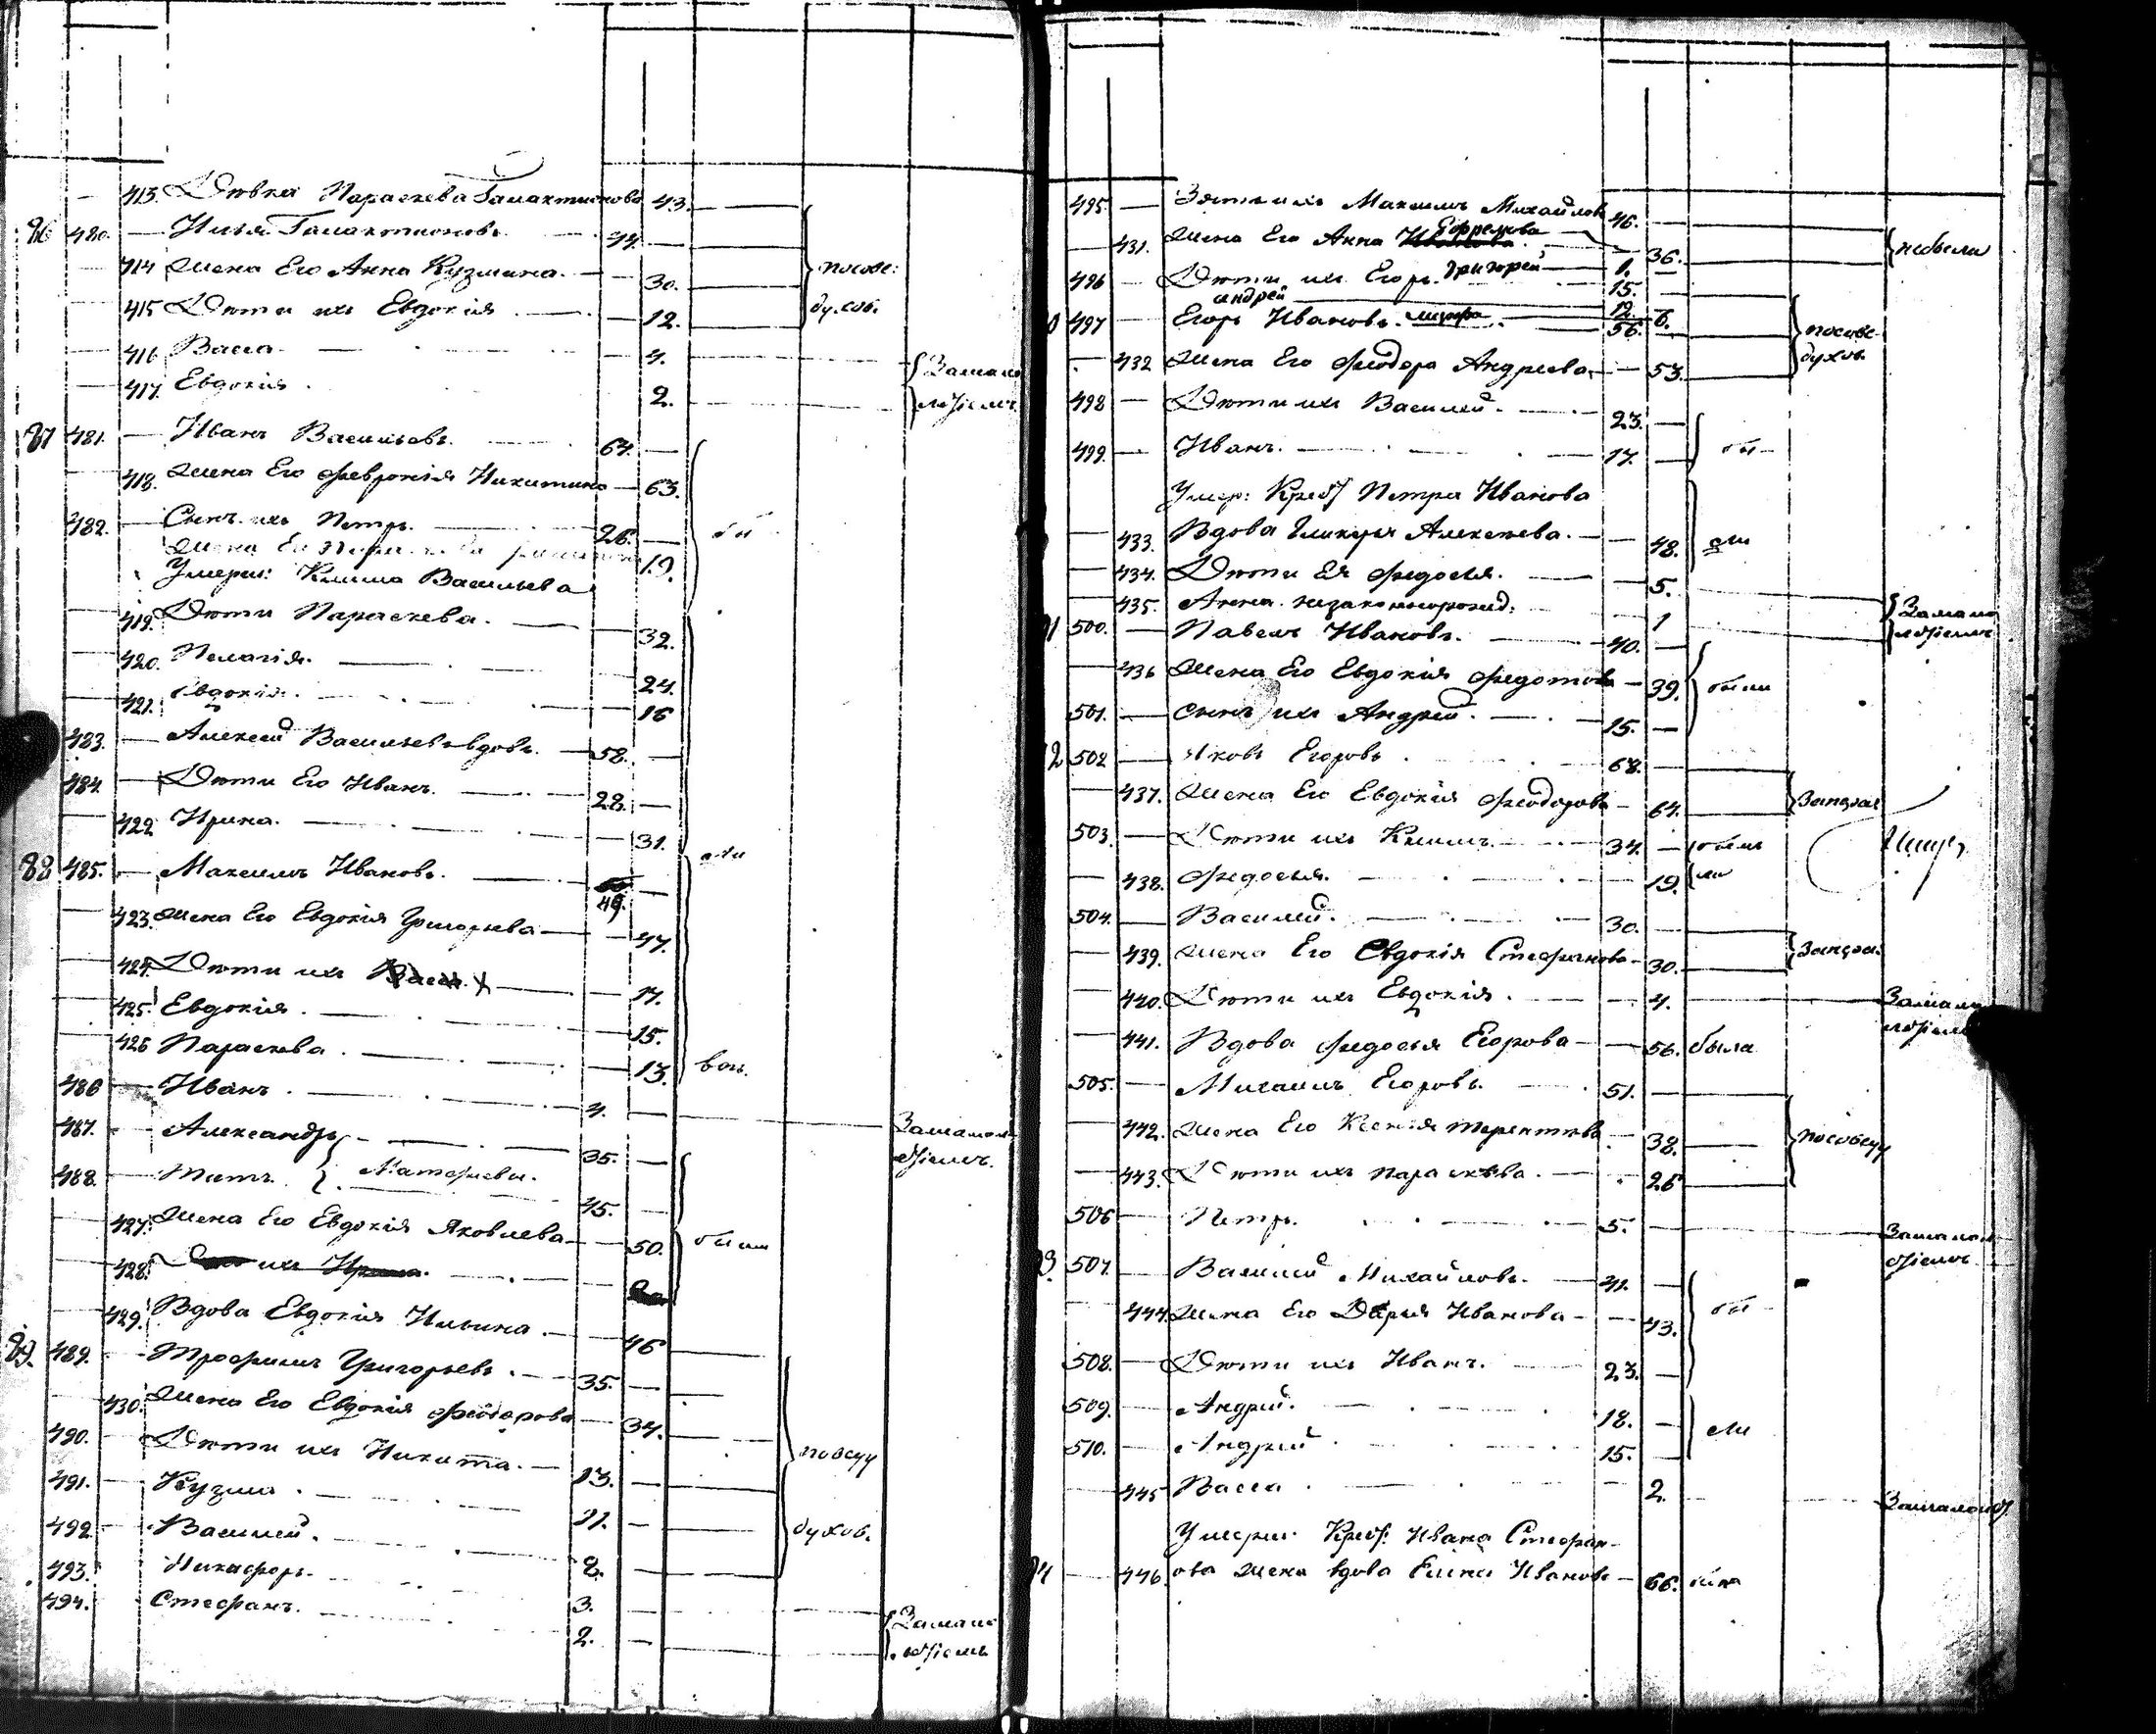 413. Дѣвка Параскева Галактионова 43.
86 480. Илья Галактионовъ 44.
414 жена Его Анна Кузмина. 30.
415 Дѣти ихъ Евдокія 12.
416 Васса 4.
417. Евдокія 2.
87 481. Иванъ Васильевъ. 64.
418. жена Его Февронія Никитина 63.
482. Сынъ ихъ Петръ. 26.
жена Его 19.
Умерш: Клима Васильева
419. Дѣти Параскева. 32.
420. Пелагія. 24.
421. Евдокія. 16
483. Алексей Васильевъ вдовъ. 58.
484. Дѣти Его Иванъ. 22.
422 Ирина. 31.
88 485. Максимъ Ивановъ. 49.
423. жена Его Евдокія Григорьева 47.
424. Дѣти ихъ Васса 17.
425. Евдокія. 15.
426 Параскева. 13.
486 Иванъ. 4.
487. Александръ 35.
488. Титъ. Матфеевы. 45.
427. жена Его Евдокія Яковлева 50. были
428. ихъ Ирина.
429. Вдова Евдокія Ильина. 46
89. 489. Трофимъ Григорьевъ. 35.
430. жена Его Евдокія Феодорова 34.
490. Дѣти ихъ Никита. 13.
491. Кузма. 11.
492. Василей. 8.
493. Никифоръ. 3.
494. Стефанъ. 2.
495. Зять ихъ Максимъ Михайловъ 46.
431. жена Его Анна Ефремова 36. небыли
496 Дѣти ихъ Егоръ. Григорей 1. 15.
андрей 12
497 Егоръ Ивановъ. 56. 6.
432 жена Его Феодора Андреева 53.
498 Дѣти ихъ Василей. 23.
499. Иванъ. 17. бы
Умер: Крест Петра Иванова
433. Вдова Гликерья Алексеева. 48. ли
434. Дѣти Ея Федосья. 5.
435. Анна незаконнорожд: 1
500. Павелъ Ивановъ. 40.
436 жена Его Евдокія Федотова 39. были
501. сынъ ихъ Андрей. 15.
502 Яковъ Егоровъ 68.
437. жена Его Евдокія Феодорова 64.
503. Дѣти ихъ Климъ. 34.
438. Федосья. 19.
504. Василей. 30.
439. жена Его Евдокія Стефанова 30.
440. Дѣти ихъ Евдокія. 4.
441. Вдова Федосья Егорова 56. была
505. Михаилъ Егоровъ. 51.
442. жена Его Ксенія терентьева 38.
443. Дѣти ихъ параскѣва. 26
506 Петръ. 5.
507. Василий Михайловъ. 41.
444. жена Его Дарья Иванова 43. бы
508. Дѣти ихъ Иванъ. 23.
509. Андрей. 18. ли
510. Андрей 15.
445 Васса 2.
Умерш. Крест: Ивана Стефан-
446. ова жена вдова Елена Иванова 66.